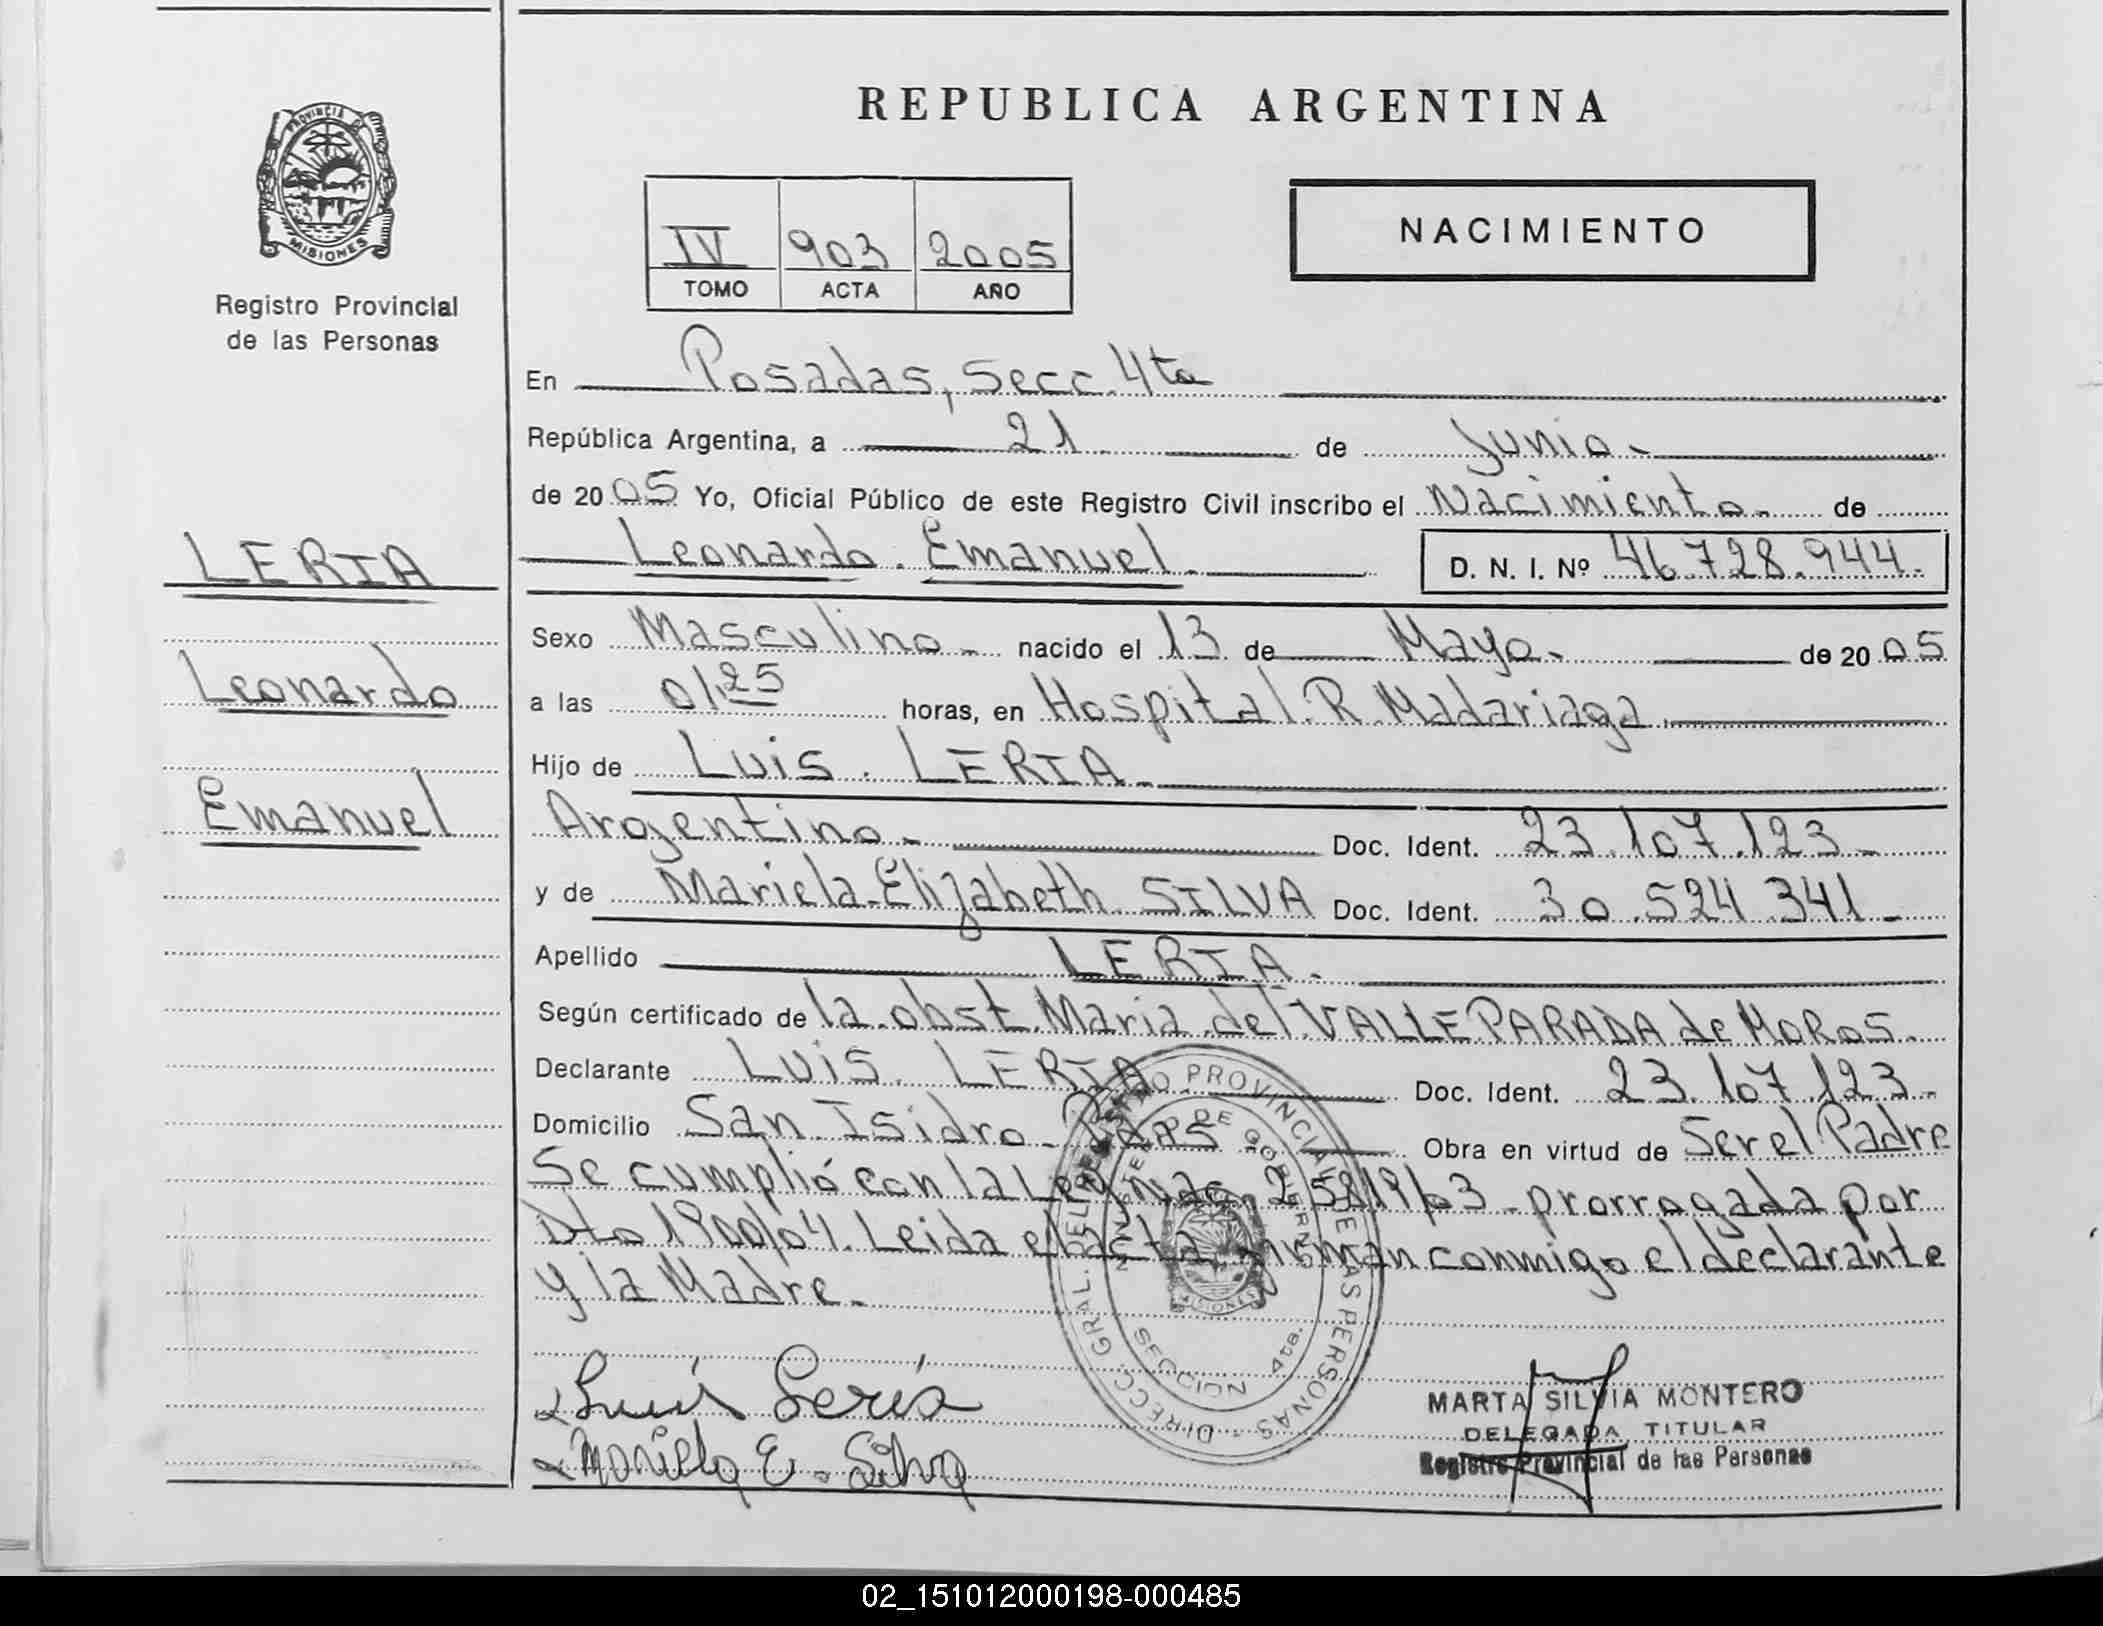 REPUBLICA ARGENTINA
PROVINCIA DE
MISIONES
Registro Provincial
de las Personas
IV 903 2005
TOMO ACTA AÑO
NACIMIENTO
En Posadas, Secc. 4ta
República Argentina, a 21 de Junio.
de 2005 Yo, Oficial Público de este Registro Civil inscribo el Nacimiento. de
Leonardo Emanuel. D. N. I. Nº 46.728.944.
LERIA
Leonardo
Emanuel
Sexo Masculino nacido el 13 de Mayo. de 2005
a las 01,25 horas, en Hospital R. Madariaga
Hijo de Luis LERIA
Argentino Doc. Ident. 23.107.123
y de Mariela Elizabeth SILVA Doc. Ident. 30.524.341
Apellido LERIA.
Según certificado de la obst. Maria del VALLE PARADA de MOROS.
Declarante Luis LERIA Doc. Ident. 23.107.123
Domicilio San Isidro Obra en virtud de Ser el Padre
Se cumplió con la Ley Nac. 25819/03 prorrogada por
Dto 1900/04. Leida el acta firman conmigo el declarante
y la Madre.
Luis Leria
Mariela E. Silva
DIRECC. GRAL. DEL REGISTRO PROVINCIAL DE LAS PERSONAS
MINISTERIO DE GOBIERNO
MISIONES
SECCION 4ta.
MARTA SILVIA MONTERO
DELEGADA TITULAR
Registro Provincial de las Personas
02_151012000198-000485